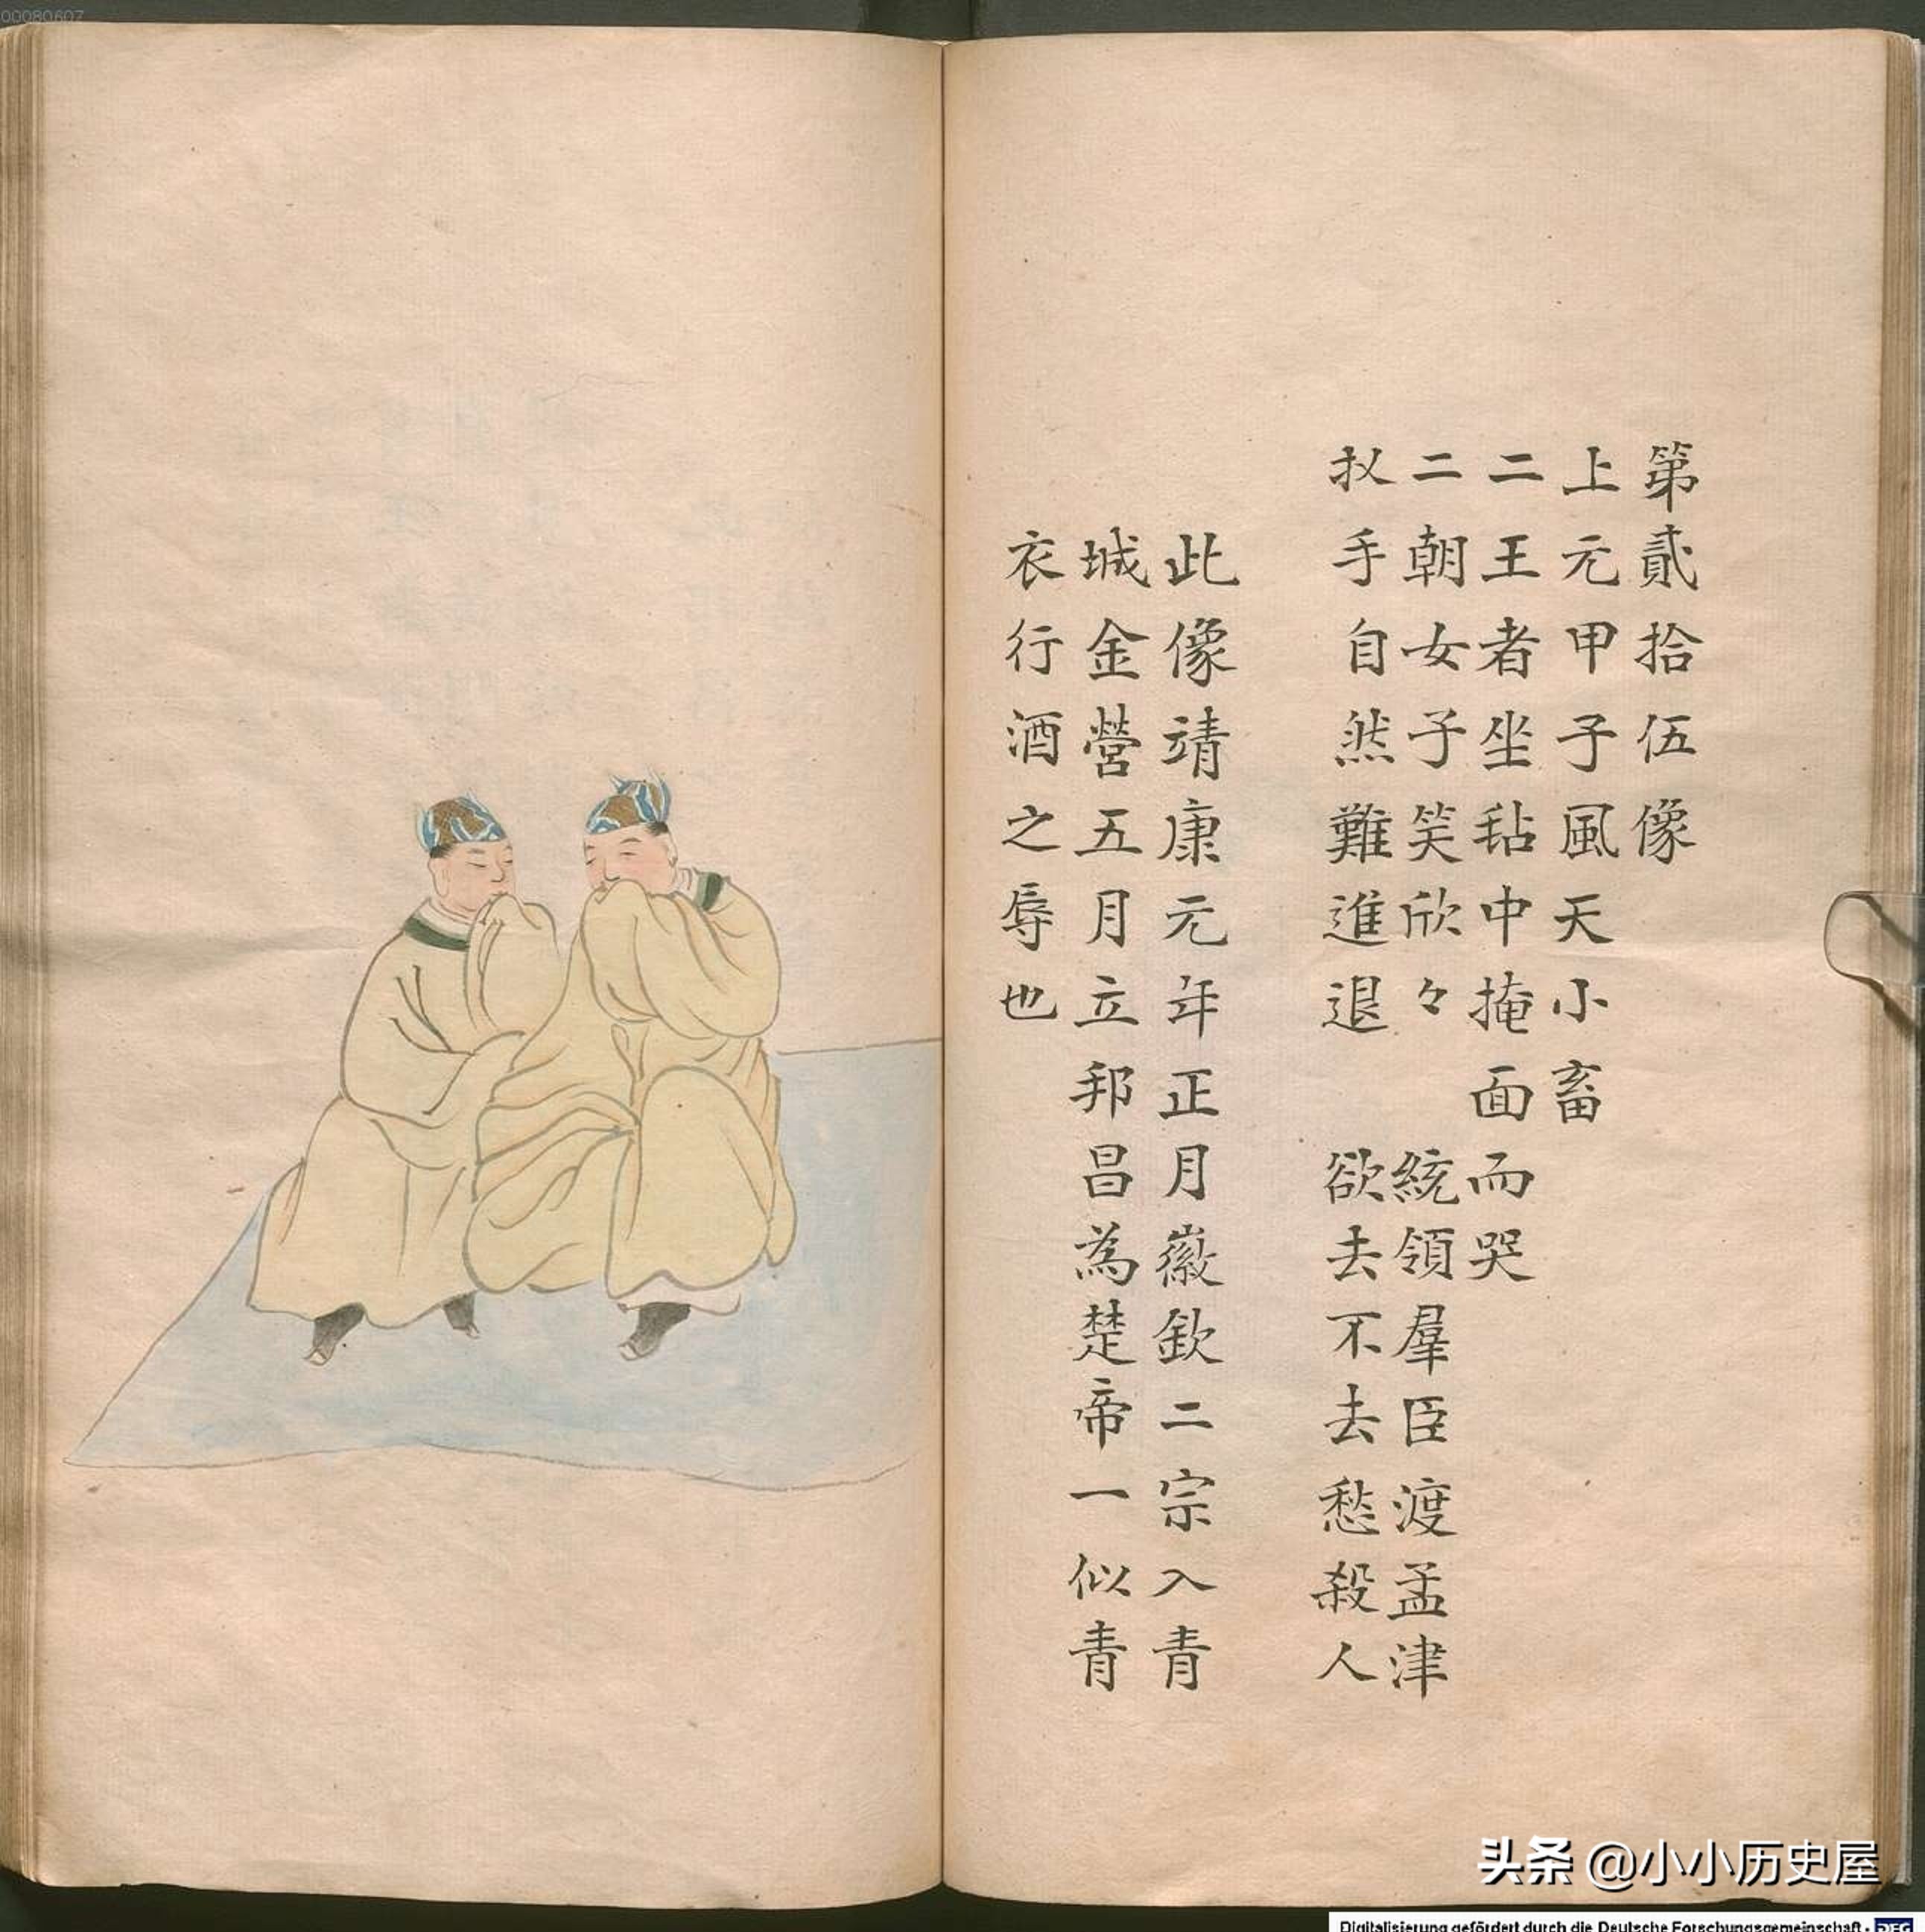 00080607
第貳拾伍像
上元甲子風天小畜
二王者坐毡中掩面而哭
二朝女子笑欣々 統領羣臣渡孟津
扠手自然難進退 欲去不去愁殺人
此像靖康元年正月徽欽二宗入青
城金營五月立邦昌為楚帝一似青
衣行酒之辱也
头条 @小小历史屋
Digitalisierung gefördert durch die Deutsche Forschungsgemeinschaft · DFG